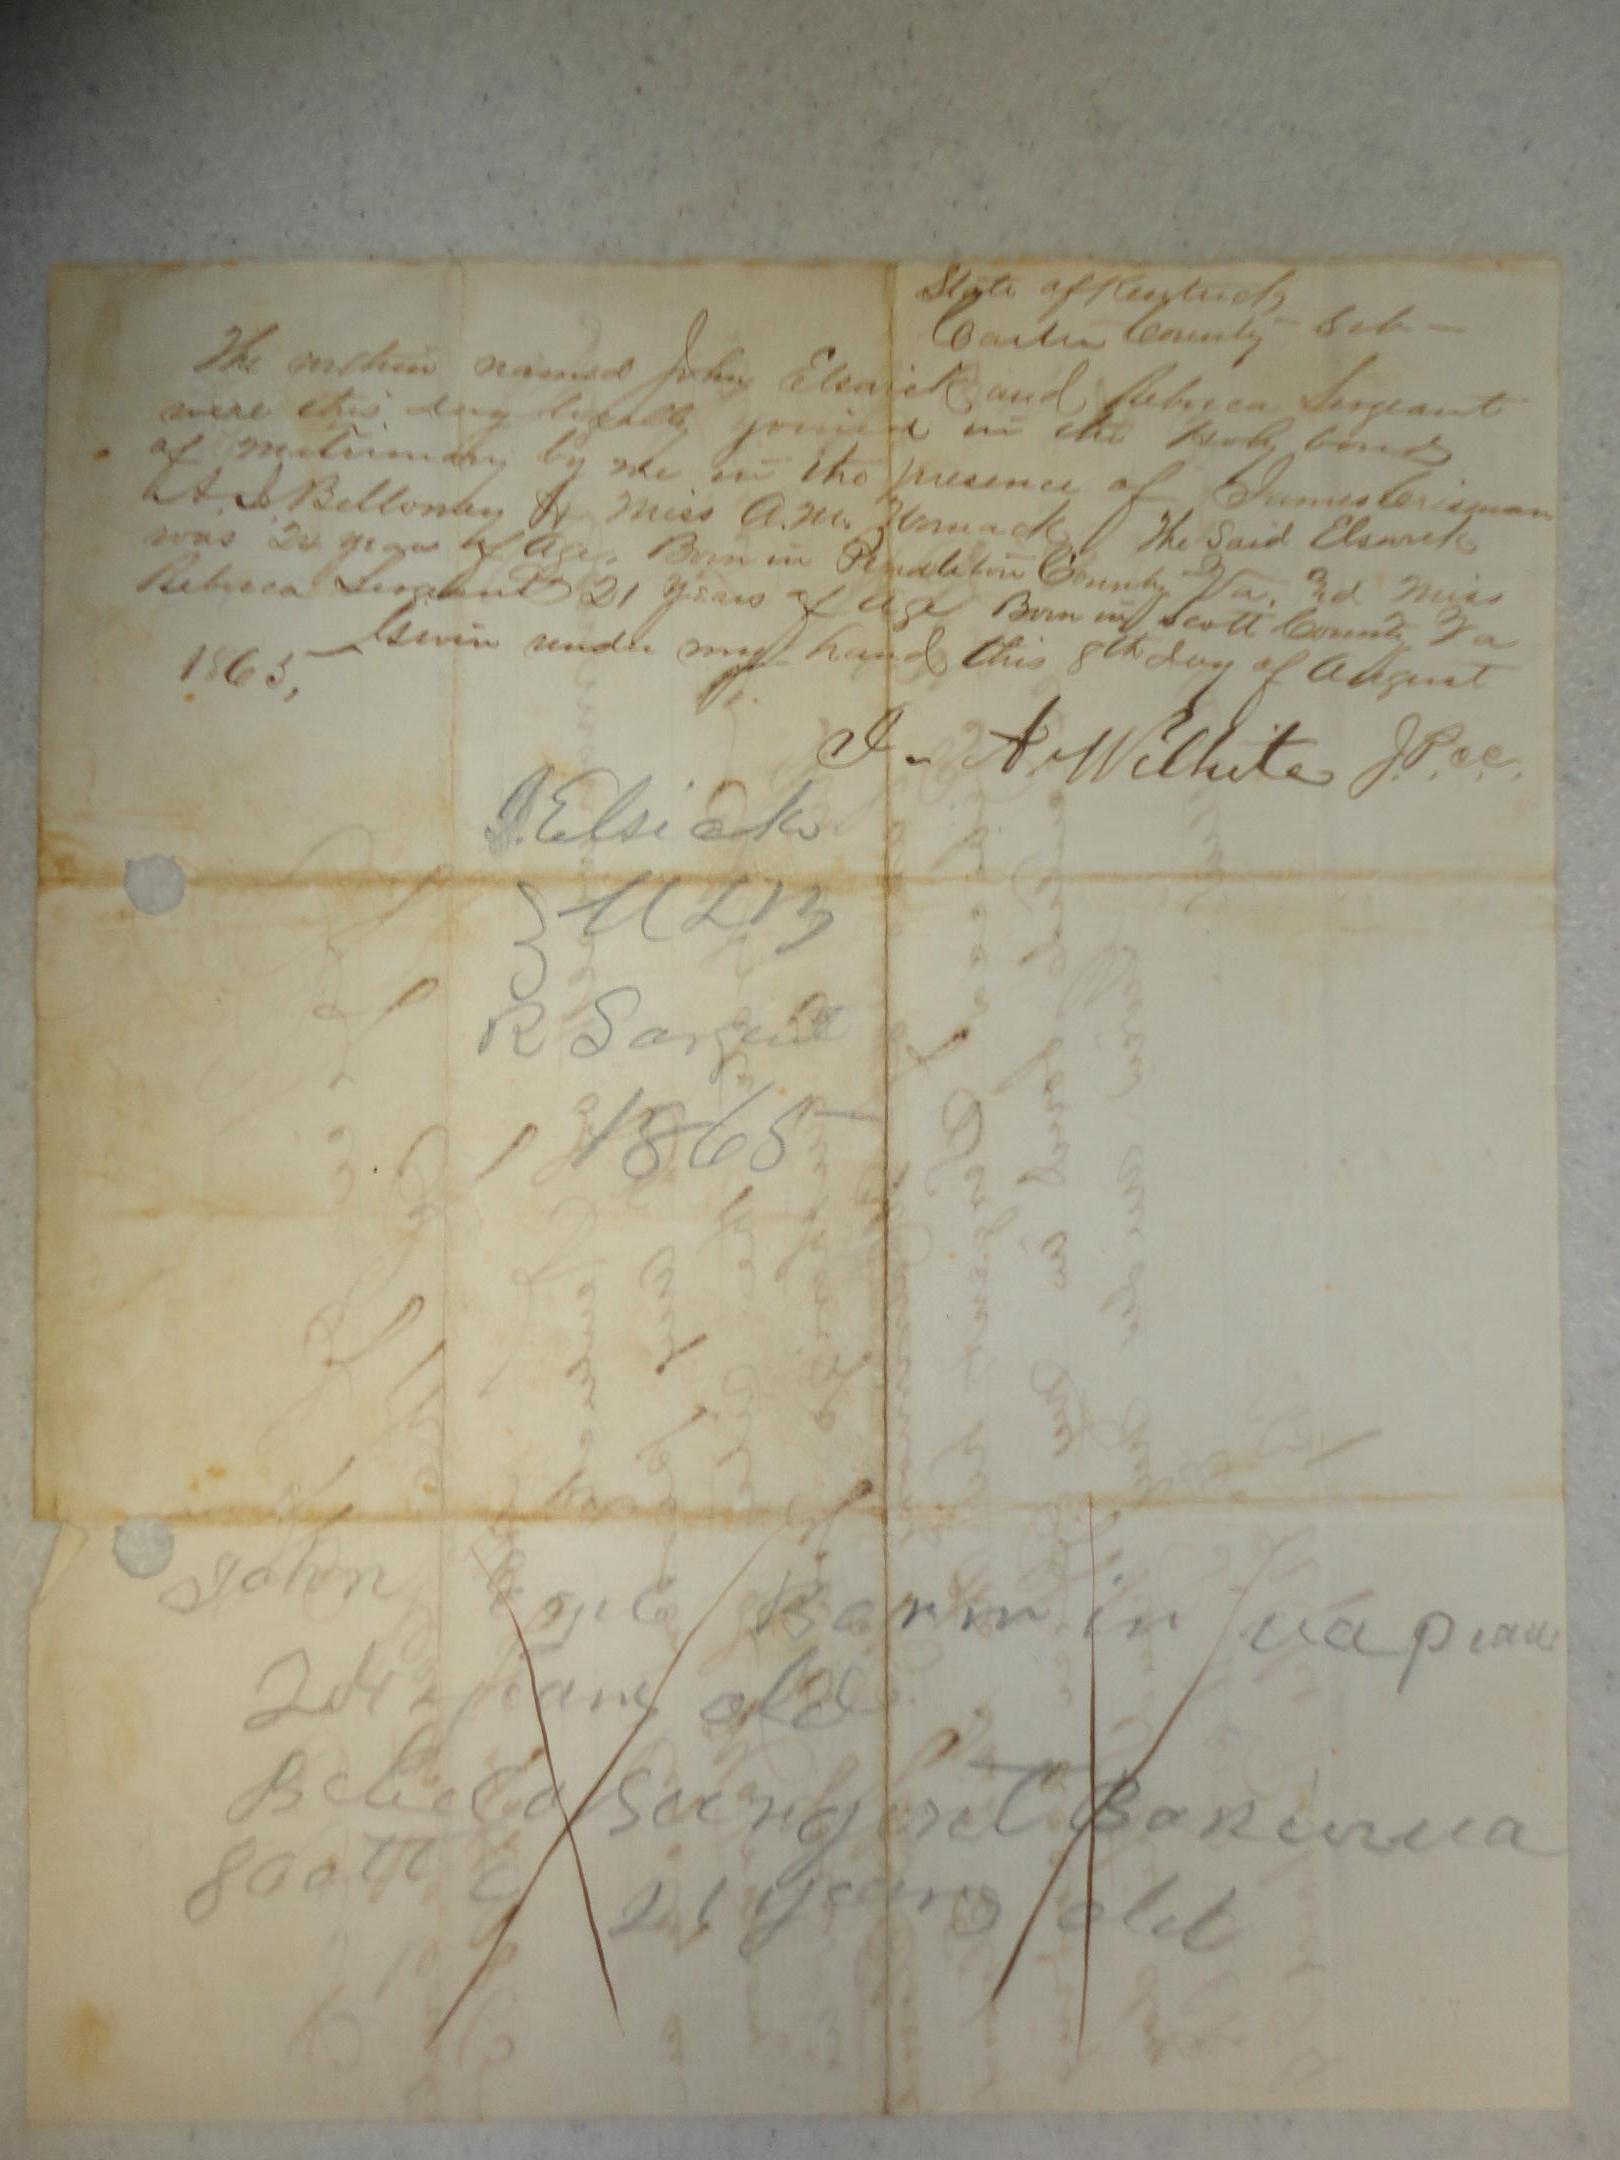 State of Kentucky
Carter County Sct —
The within named John Elswick and Rebecca Sergeant
were this day legally joined in the Holy bonds
of matrimony by me in the presence of James Crisman
A. J. Belloney & Miss A. M. Womack The Said Elswick
was 24 years of Age. Born in Pendleton County Va. and Miss
Rebecca Sergeant 21 years of Age Born in Scott County Va
Given under my hand this 8th day of August
1865,
A. Wilhite J.P.C.C.
J. Elsick
M L B
R Sargent
1865
John age Born in va
24 years old
Sergent Born in va
Scott C 21 years old